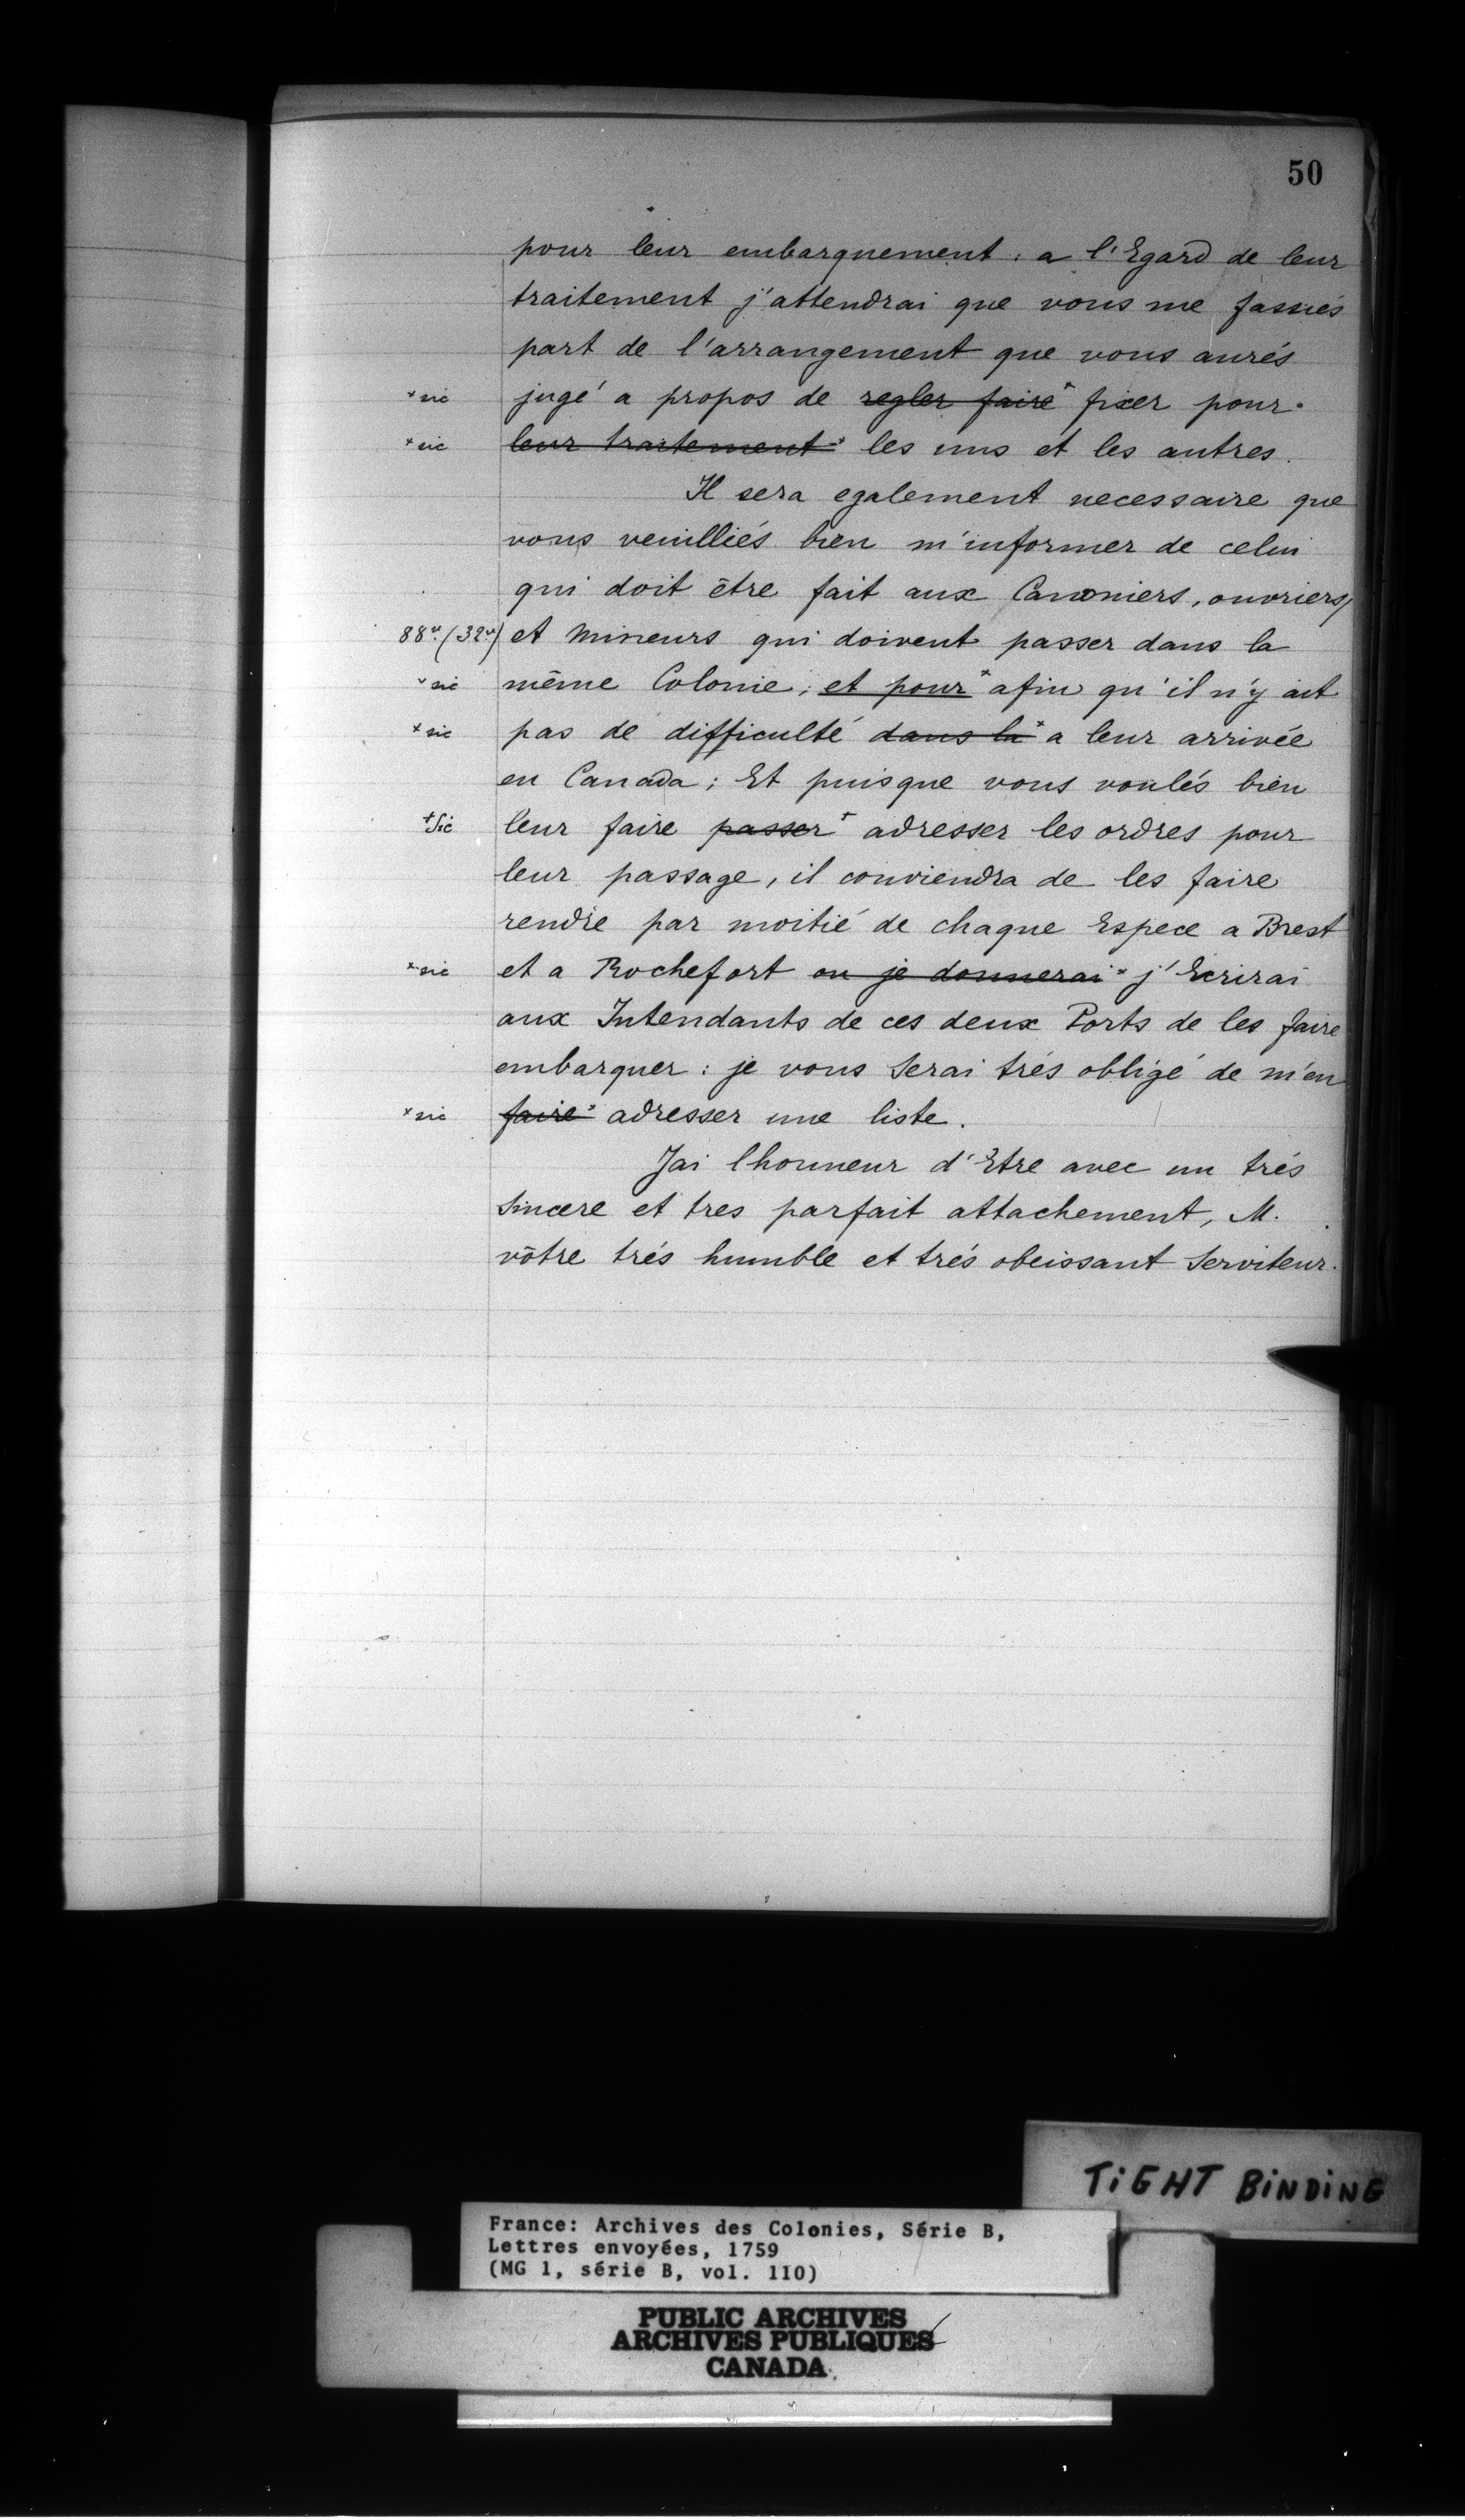 50
pour leur embarquement : a l'Egard de leur
traitement j'attendrai que vous me fassiés
part de l'arrangement que vous aurés
*sic jugé a propos de regler faire* fixer pour
*sic leur traitement* les uns et les autres.
Il sera egalement necessaire que
vous veuilliés bien m'informer de celui
qui doit être fait aux Canoniers, ouvriers,
88vo (32vo) et Mineurs qui doivent passer dans la
*sic même Colonie; et pour* afin qu'il n'y ait
*sic pas de difficulté dans la* a leur arrivée
en Canada; Et puisque vous voulés bien
+Sic leur faire passer+ adresser les ordres pour
leur passage, il conviendra de les faire
rendre par moitié de chaque Espece a Brest
*sic et a Rochefort ou je donnerai* j'Ecrirai
aux Intendants de ces deux Ports de les faire
embarquer : je vous Serai trés obligé de m'en
*sic faire* adresser une liste.
Jai lhonneur d'Etre avec un trés
Sincere et tres parfait attachement, M.
vôtre trés humble et trés obeissant Serviteur.
TiGHT BiNDiNG
France: Archives des Colonies, Série B,
Lettres envoyées, 1759
(MG 1, série B, vol. 110)
PUBLIC ARCHIVES
ARCHIVES PUBLIQUES
CANADA